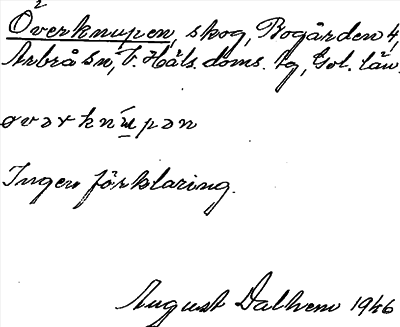 Överknupen, skog, Rogården 4,
Arbrå sn, V. Häls. doms. tg, Gvl. län.
øvərknupən
Ingen förklaring.
August Dalhem 1946